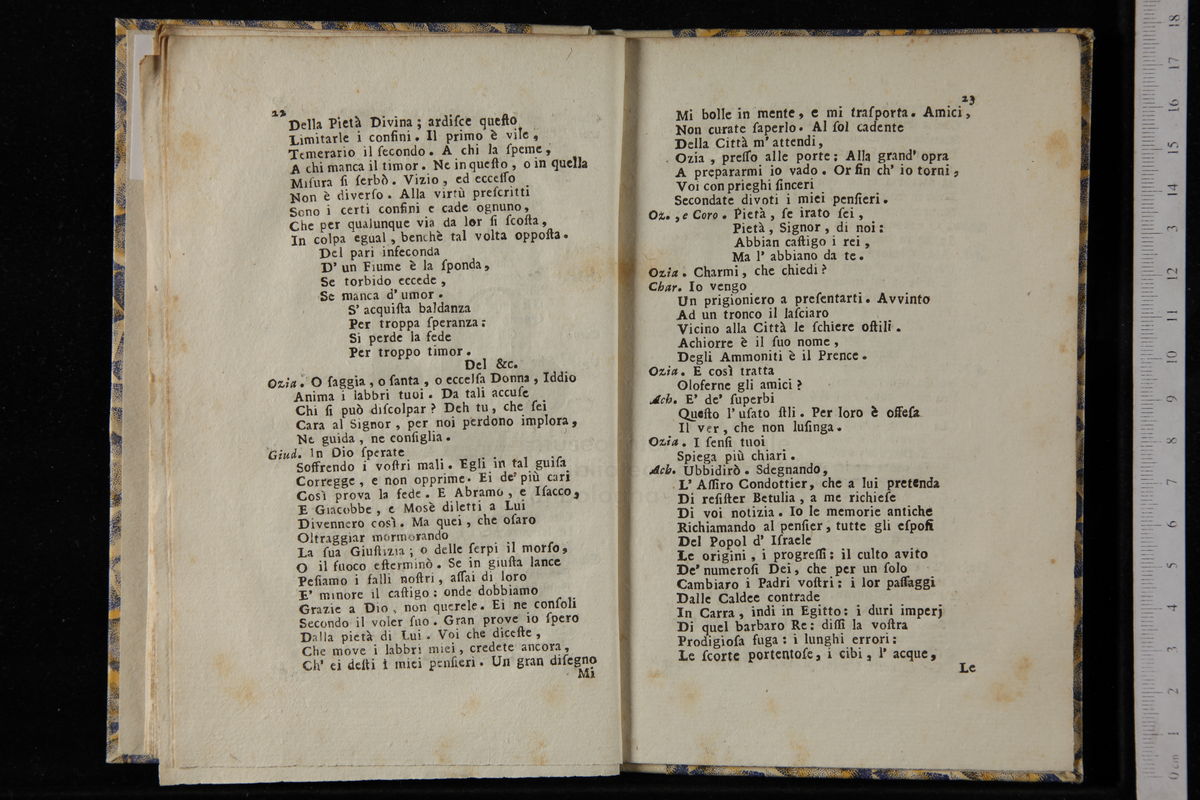 22
Della Pietà Divina ; ardiſce queſto
Limitarle i confini . Il primo è vile ,
Temerario il ſecondo . A chi la ſpeme ,
A chi manca il timor . Ne in queſto , o in quella
Miſura ſi ſerbò . Vizio , ed ecceſſo
Non è diverſo . Alla virtù preſcritti
Sono i certi confini e cade ognuno ,
Che per qualunque via da lor ſi ſcoſta ,
In colpa egual , benchè tal volta oppoſta .
Del pari infeconda
D' un Fiume è la ſponda ,
Se torbido eccede ,
Se manca d' umor .
S' acquiſta baldanza
Per troppa ſperanza :
Si perde la fede
Per troppo timor .
Del &c.
Ozia . O ſaggia , o ſanta , o eccelſa Donna , Iddio
Anima i labbri tuoi . Da tali accuſe
Chi ſi può diſcolpar ? Deh tu , che ſei
Cara al Signor , per noi perdono implora ,
Ne guida , ne conſiglia .
Giud. In Dio ſperate
Soffrendo i voſtri mali . Egli in tal guiſa
Corregge , e non opprime . Ei de' più cari
Così prova la fede . E Abramo , e Iſacco ,
E Giacobbe , e Mosè diletti a Lui
Divennero così . Ma quei , che oſaro
Oltraggiar mormorando
La ſua Giuſtizia ; o delle ſerpi il morſo ,
O il fuoco eſterminò . Se in giuſta lance
Peſiamo i falli noſtri , aſſai di loro
E' minore il caſtigo : onde dobbiamo
Grazie a Dio , non querele . Ei ne conſoli
Secondo il voler ſuo . Gran prove io ſpero
Dalla pietà di Lui . Voi che diceſte ,
Che move i labbri miei , credete ancora ,
Ch' ei deſti i miei penſieri . Un gran diſegno
Mi
23
Mi bolle in mente , e mi traſporta . Amici ,
Non curate ſaperlo . Al ſol cadente
Della Città m' attendi ,
Ozia , preſſo alle porte : Alla grand' opra
A prepararmi io vado . Or fin ch' io torni ,
Voi con prieghi ſinceri
Secondate divoti i miei penſieri .
Oz. , e Coro . Pietà , ſe irato ſei ,
Pietà , Signor , di noi :
Abbian caſtigo i rei ,
Ma l' abbiano da te .
Ozia . Charmi , che chiedi ?
Char. Io vengo
Un prigioniero a preſentarti . Avvinto
Ad un tronco il laſciaro
Vicino alla Città le ſchiere oſtili .
Achiorre è il ſuo nome ,
Degli Ammoniti è il Prence .
Ozia . E così tratta
Oloferne gli amici ?
Ach. E' de' ſuperbi
Queſto l' uſato ſtil . Per loro è offeſa
Il ver , che non luſinga .
Ozia . I ſenſi tuoi
Spiega più chiari .
Ach. Ubbidirò . Sdegnando ,
L' Aſſiro Condottier , che a lui pretenda
Di reſiſter Betulia , a me richieſe
Di voi notizia . Io le memorie antiche
Richiamando al penſier , tutte gli eſpoſi
Del Popol d' Iſraele
Le origini , i progreſſi : il culto avito
De' numeroſi Dei , che per un ſolo
Cambiaro i Padri voſtri : i lor paſſaggi
Dalle Caldee contrade
In Carra , indi in Egitto : i duri imperj
Di quel barbaro Re : diſſi la voſtra
Prodigioſa fuga : i lunghi errori :
Le ſcorte portentoſe , i cibi , l' acque ,
Le